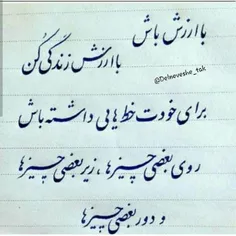 با ارزش باش
با ارزش زندگی کُن
@Delneveshe_tak
برای خودت خط هایی داشته باش
روی بعضی چیزها ، زیر بعضی چیزها
و دور بعضی چیزها